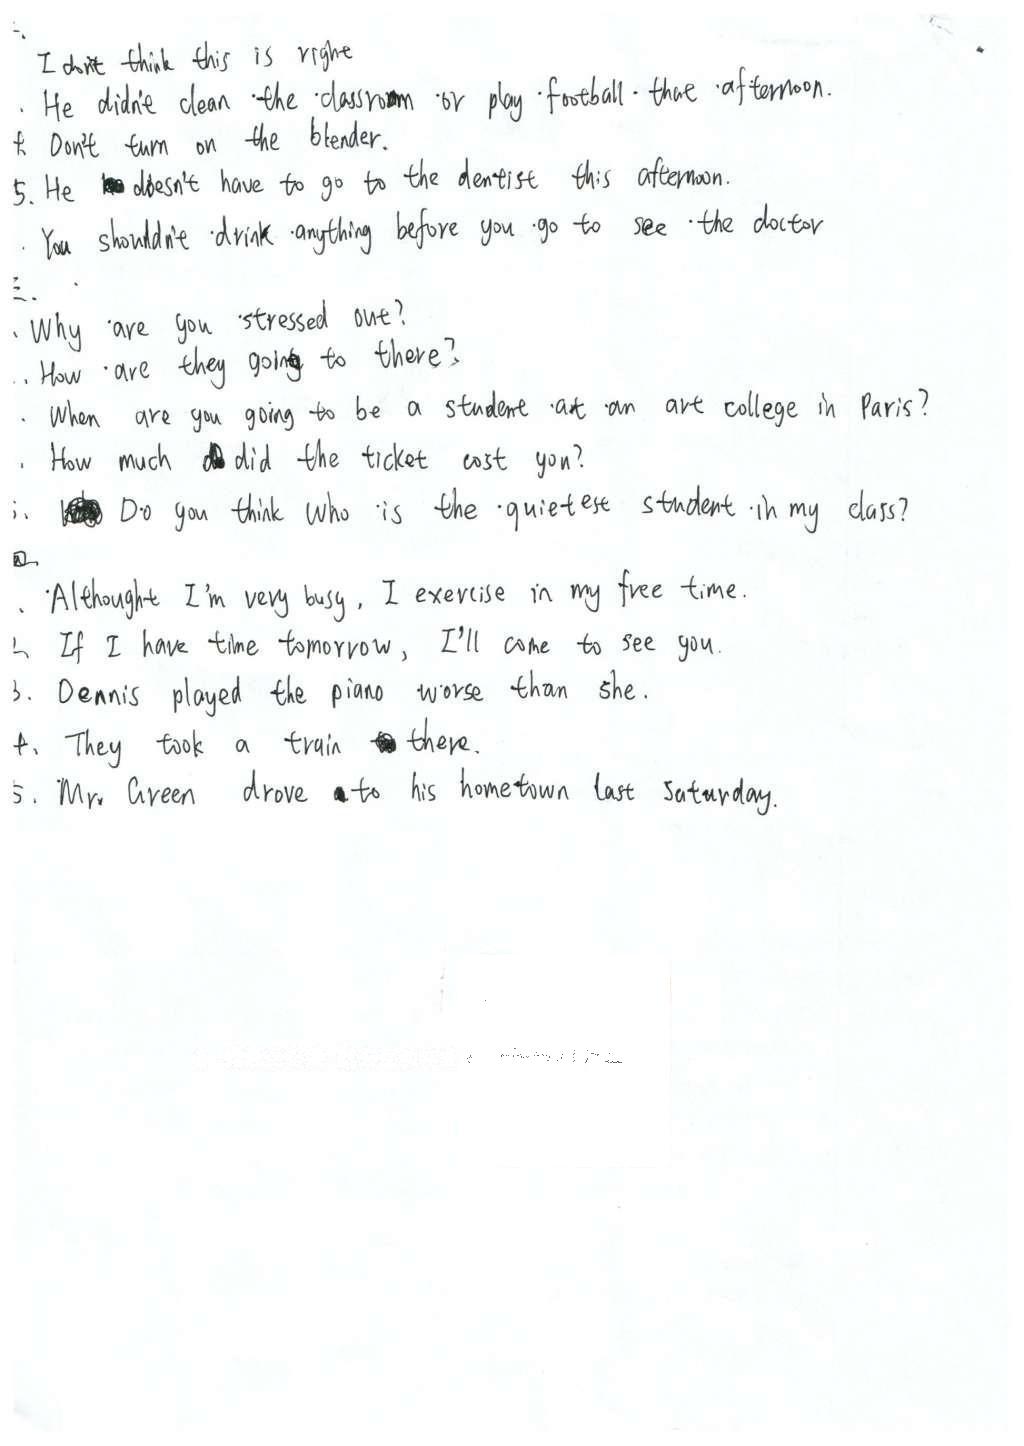 二.
I don't think this is right
. He didn't clean the classroom or play football that afternoon.
4. Don't turn on the blender.
5. He doesn't have to go to the dentist this afternoon.
. You shouldn't drink anything before you go to see the doctor
三.
. Why are you stressed out?
. How are they going to there?
. When are you going to be a student at an art college in Paris?
. How much did the ticket cost you?
5. Do you think who is the quietest student in my class?
四.
. Althought I'm very busy, I exercise in my free time.
2. If I have time tomorrow, I'll come to see you.
3. Dennis played the piano worse than she.
4. They took a train there.
5. Mr. Green drove to his hometown last Saturday.